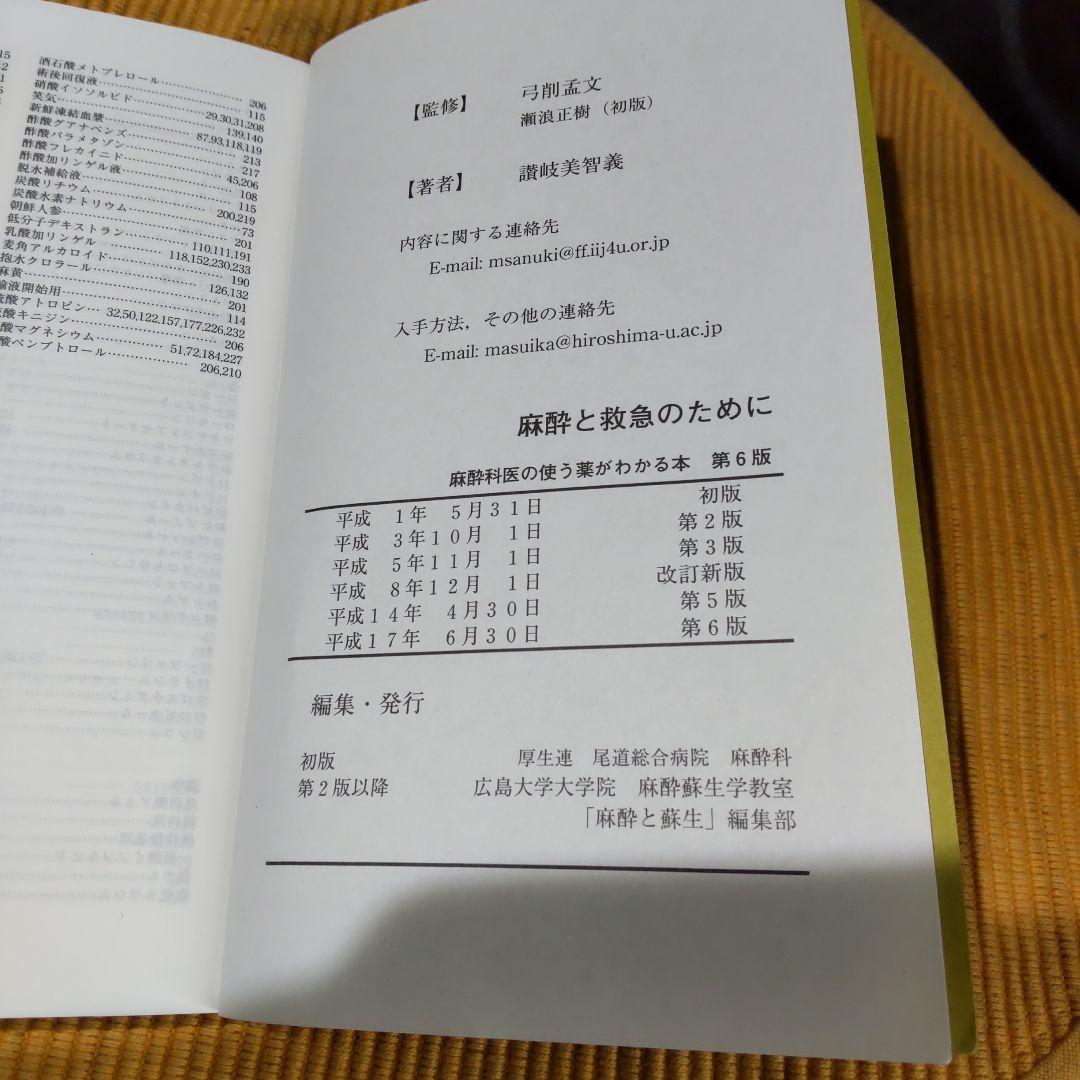 酒石酸メトプレロール…… 206
術後回復液…… 115
硝酸イソソルビド…… 29,30,31,208
笑気…… 139,140
新鮮凍結血漿…… 87,93,118,119
酢酸グアナベンズ…… 213
酢酸パラメタゾン…… 217
酢酸フレカイニド…… 45,206
酢酸加リンゲル液…… 108
脱水補給液…… 115
炭酸リチウム…… 200,219
炭酸水素ナトリウム…… 73
朝鮮人参…… 201
低分子デキストラン…… 110,111,191
乳酸加リンゲル…… 118,152,230,233
麦角アルカロイド…… 190
抱水クロラール…… 126,132
麻黄…… 201
輸液開始用…… 114
硫酸アトロピン… 32,50,122,157,177,226,232
硫酸キニジン…… 206
酸マグネシウム…… 51,72,184,227
酸ペンブトロール…… 206,210
【監修】 弓削孟文
瀬浪正樹（初版）
【著者】 讃岐美智義
内容に関する連絡先
E-mail: msanuki@ff.iij4u.or.jp
入手方法，その他の連絡先
E-mail: masuika@hiroshima-u.ac.jp
麻酔と救急のために
麻酔科医の使う薬がわかる本 第６版
平成 １年 ５月３１日 初版
平成 ３年１０月 １日 第２版
平成 ５年１１月 １日 第３版
平成 ８年１２月 １日 改訂新版
平成１４年 ４月３０日 第５版
平成１７年 ６月３０日 第６版
編集・発行
初版 厚生連 尾道総合病院 麻酔科
第２版以降 広島大学大学院 麻酔蘇生学教室
「麻酔と蘇生」編集部